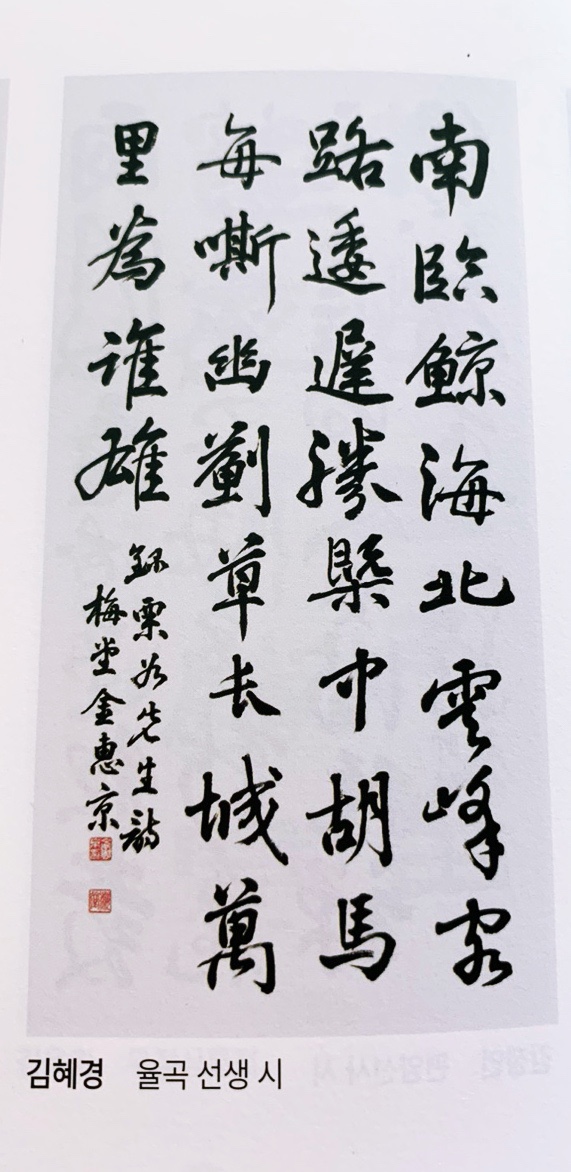 南臨鯨海北雲峰客
路逶遲勝槩中胡馬
每嘶幽薊草長城萬
里為誰雄
錄栗谷先生詩
梅堂金惠京
김혜경 율곡 선생 시